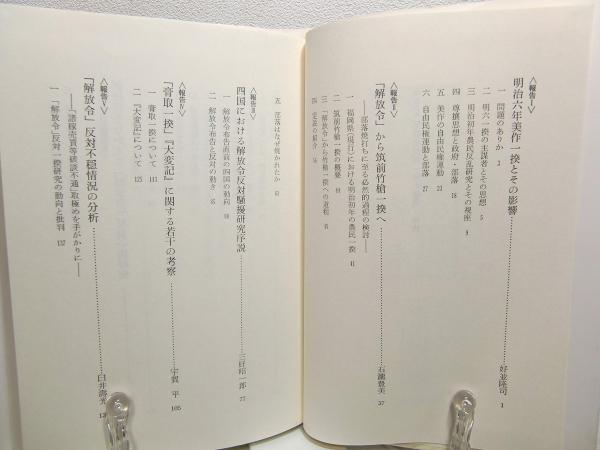 〈報告Ⅰ〉
明治六年美作一揆とその影響……好並隆司 1
一 問題のありか 2
二 明六一揆の主謀者とその思想 5
三 明治初年農民反乱研究とその視座 9
四 尊攘思想と政府・部落 18
五 美作の自由民権運動 21
六 自由民権運動と部落 27
〈報告Ⅱ〉
「解放令」から筑前竹槍一揆へ……石瀧豊美 37
──部落焼打ちに至る必然的過程の検討──
一 福岡県(現行)における明治初年の農民一揆 41
二 筑前竹槍一揆の概要
三 「解放令」から竹槍一揆への道程
四 定説の紹介
五 部落はなぜ焼かれたか
〈報告Ⅲ〉
四国における解放令反対騒擾研究序説……三好昭一郎 77
一 解放令布告直前の四国の動向
二 解放令布告と反対の動き
〈報告Ⅳ〉
『膏取一揆』『大変記』に関する若干の考察……宇賀 平 105
一 膏取一揆について 111
二 『大変記』について 125
〈報告Ⅴ〉
「解放令」反対不穏情況の分析……臼井壽光
──「諸稼売買等破談不通」取極めを手がかりに──
一 「解放令」反対一揆研究の動向と批判 137